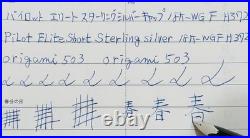 パイロット エリート スターリングシルバーキャップ 14K-WG F H392
Pilot Elite Short Sterling silver 14K-WG F H392
origami 503 origami 503
春 春 春